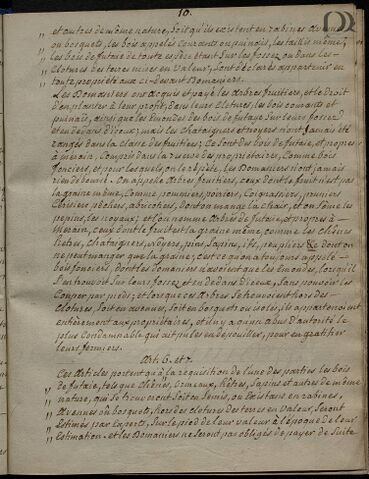 10.
„ et autres de même nature, soit qu'ils existent en rabines avenues
„ ou bosquets, les bois appelés Courants ou puinais, les taillis même,
„ les bois de futaie de toute espèce étant Sur les fossez ou dans les
„ Clotures des terres mises en Valeur, Sont déclarés appartenir en
„ toute propriété aux ci-devant Domaniers.
Les Domaniers ont acquis et payé les Arbres fruitiers, et le Droit
d'en planter à leur profit, dans leurs clotures, les bois courants et
puinais, ainsi que les Emondes des bois de futaye Sur leurs fossez
et en dedans d'iceux; mais les Chataigners et noyers n'ont Jamais été
rangés dans la classe des fruitiers; Ce Sont des bois de futaie, et propres
à merain, Compris dans la réserve des propriétaires, Comme bois
fonciers, et pour lesquels, on le répète, les Domaniers n'ont jamais
rien déboursé. On appelle Arbres fruitiers, ceux dont le fruit n'est pas
la graine même, Comme pommiers, poiriers, Coignassiers, pruniers
Cerisiers pêchers, abricotiers, dont on mange la Chair, et on Sème les
pepins, les noyaux; et l'on nomme Arbres de futaie, et propres à
Merain, ceux dont le fruit est la graine même, comme les Chênes
hêtres, Chataigners, noyers, pins, Sapins, ifs, peupliers &c dont on
ne peut manger que la graine; c'est ce qu'on a toujours appelé
bois fonciers, dont les domaniers n'avoient que les émondes, lorsqu'il
S'en trouvoit Sur leurs fossez et en dedans d'iceux, Sans pouvoir les
Couper par pieds; et lorsque ces Arbres Se trouvoient hors des
Clotures, Soit en avenues, Soit en bosquets ou isolés, ils appartenoient
entièrement aux propriétaires, et il n'y a qu'un abus d'autorité le
plus Condamnable qui ait pu les en dépouiller, pour en gratifier
leurs fermiers.
Art. 6. et 7.
Ces Articles portent qu'à la réquisition de l'une des parties les bois
„ de futaie, tels que Chênes, Ormeaux, hêtres, Sapins et autres de même
„ nature, qui Se trouveront Soit en Semis, ou Existans en rabines,
„ Avenues ou bosquets, hors des clotures des terres en Valeur, Seront
„ Estimés par Experts, Sur le pied de leur valeur à l'époque de leur
„ Estimation. et les Domaniers ne Seront pas obligés de payer de Suite